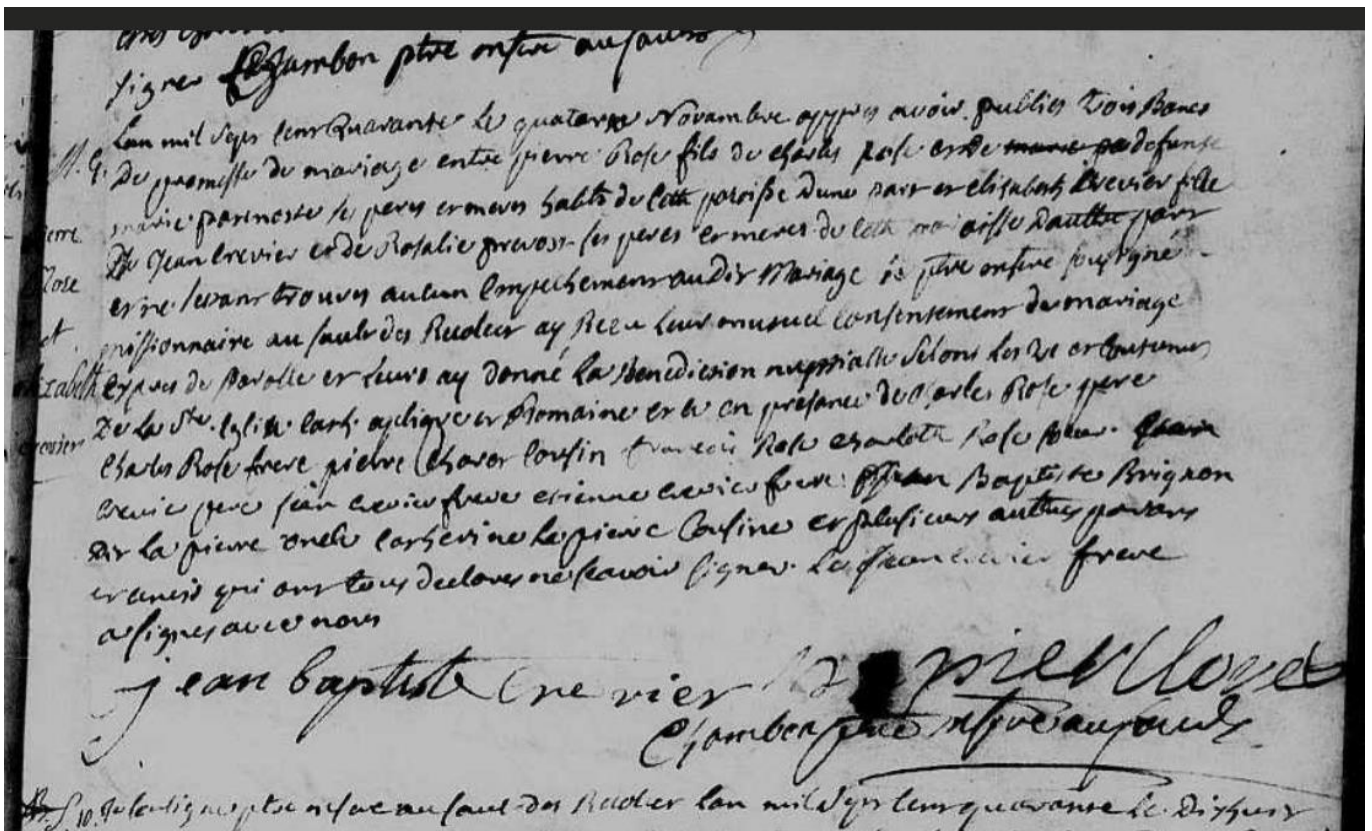 signer Chambon ptre msre au sault
Lan mil Sept Cent Quarante Le quatorze Novambre appres avoir publies trois Bancs
M. 9. De promesse de mariage entre pierre Rose fils de charles rose et de defunte
marie les peres et meres habts de Cette paroisse Dune part et elisabeth Crevier fille
De Jean Crevier et de Rosalie prevost ses peres et meres de Cette Daultre part
et ne setant trouves aucun Empechement audit Mariage je ptre msre sousigné
missionnaire au sault des Recolect ay Receu Leur mutuel Consentement de mariage
Expres de parolle et Leurs ay donné La Benediction nuptialle Selons Les et Coutumes
De La Ste. Eglise Cath. aplique et Romaine et ce en presance de Charles Rose pere
Charles Rose frere pierre Cousin francois Rose Charlotte Rose
Crevie pere jean Crevier frere etienne Crevier frere jean Baptiste Brignon
dit La pierre oncle Catherine La pierre Cousine et plusieurs autres parans
et amis qui ont tous declares ne scavoir signer. Le jean Crevier frere
a signes avec nous
jean baptiste Crevier pier Rose
Chambon ptre msre au sault
pierre
Rose
et
Elizabeth
crevier
S. 10. ptre msre au saut des Recolect Lan mil Sept Cent quarante Le Dixhuit